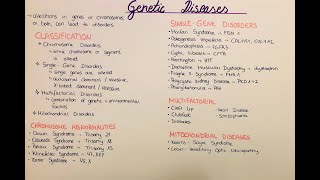 Genetic Diseases
• Alterations in genes or chromosomes or both can lead to disorders
CLASSIFICATION
Chromosome Disorders
entire chromosome or segment is altered
Single-Gene Disorders
single genes are altered
autosomal dominant / recessive
X-linked dominant / recessive
Multifactorial Disorders
combination of genetic + environmental factors
Mitochondrial Disorders
CHROMOSOME ABNORMALITIES
Down Syndrome - Trisomy 21
Edwards Syndrome - Trisomy 18
Patau Syndrome - Trisomy 13
Klinefelter Syndrome - 47, XXY
Turner Syndrome - 45, X
SINGLE-GENE DISORDERS
Marfan Syndrome - FBN 1
Osteogenesis Imperfecta - COL1A1, COL1A2
Achondroplasia - FGFR3
Cystic Fibrosis - CFTR
Huntington's - HTT
Duchenne Muscular Dystrophy - dystrophin
Fragile X Syndrome - FMR 1
Polycystic Kidney Disease - PKD 1 + 2
Phenylketonuria - PAH
MULTIFACTORIAL
Cleft Lip
Clubfoot
Heart Disease
Schizophrenia
Diabetes
MITOCHONDRIAL DISEASES
Kearns - Sayre Syndrome
Leber Hereditary Optic Neuropathy